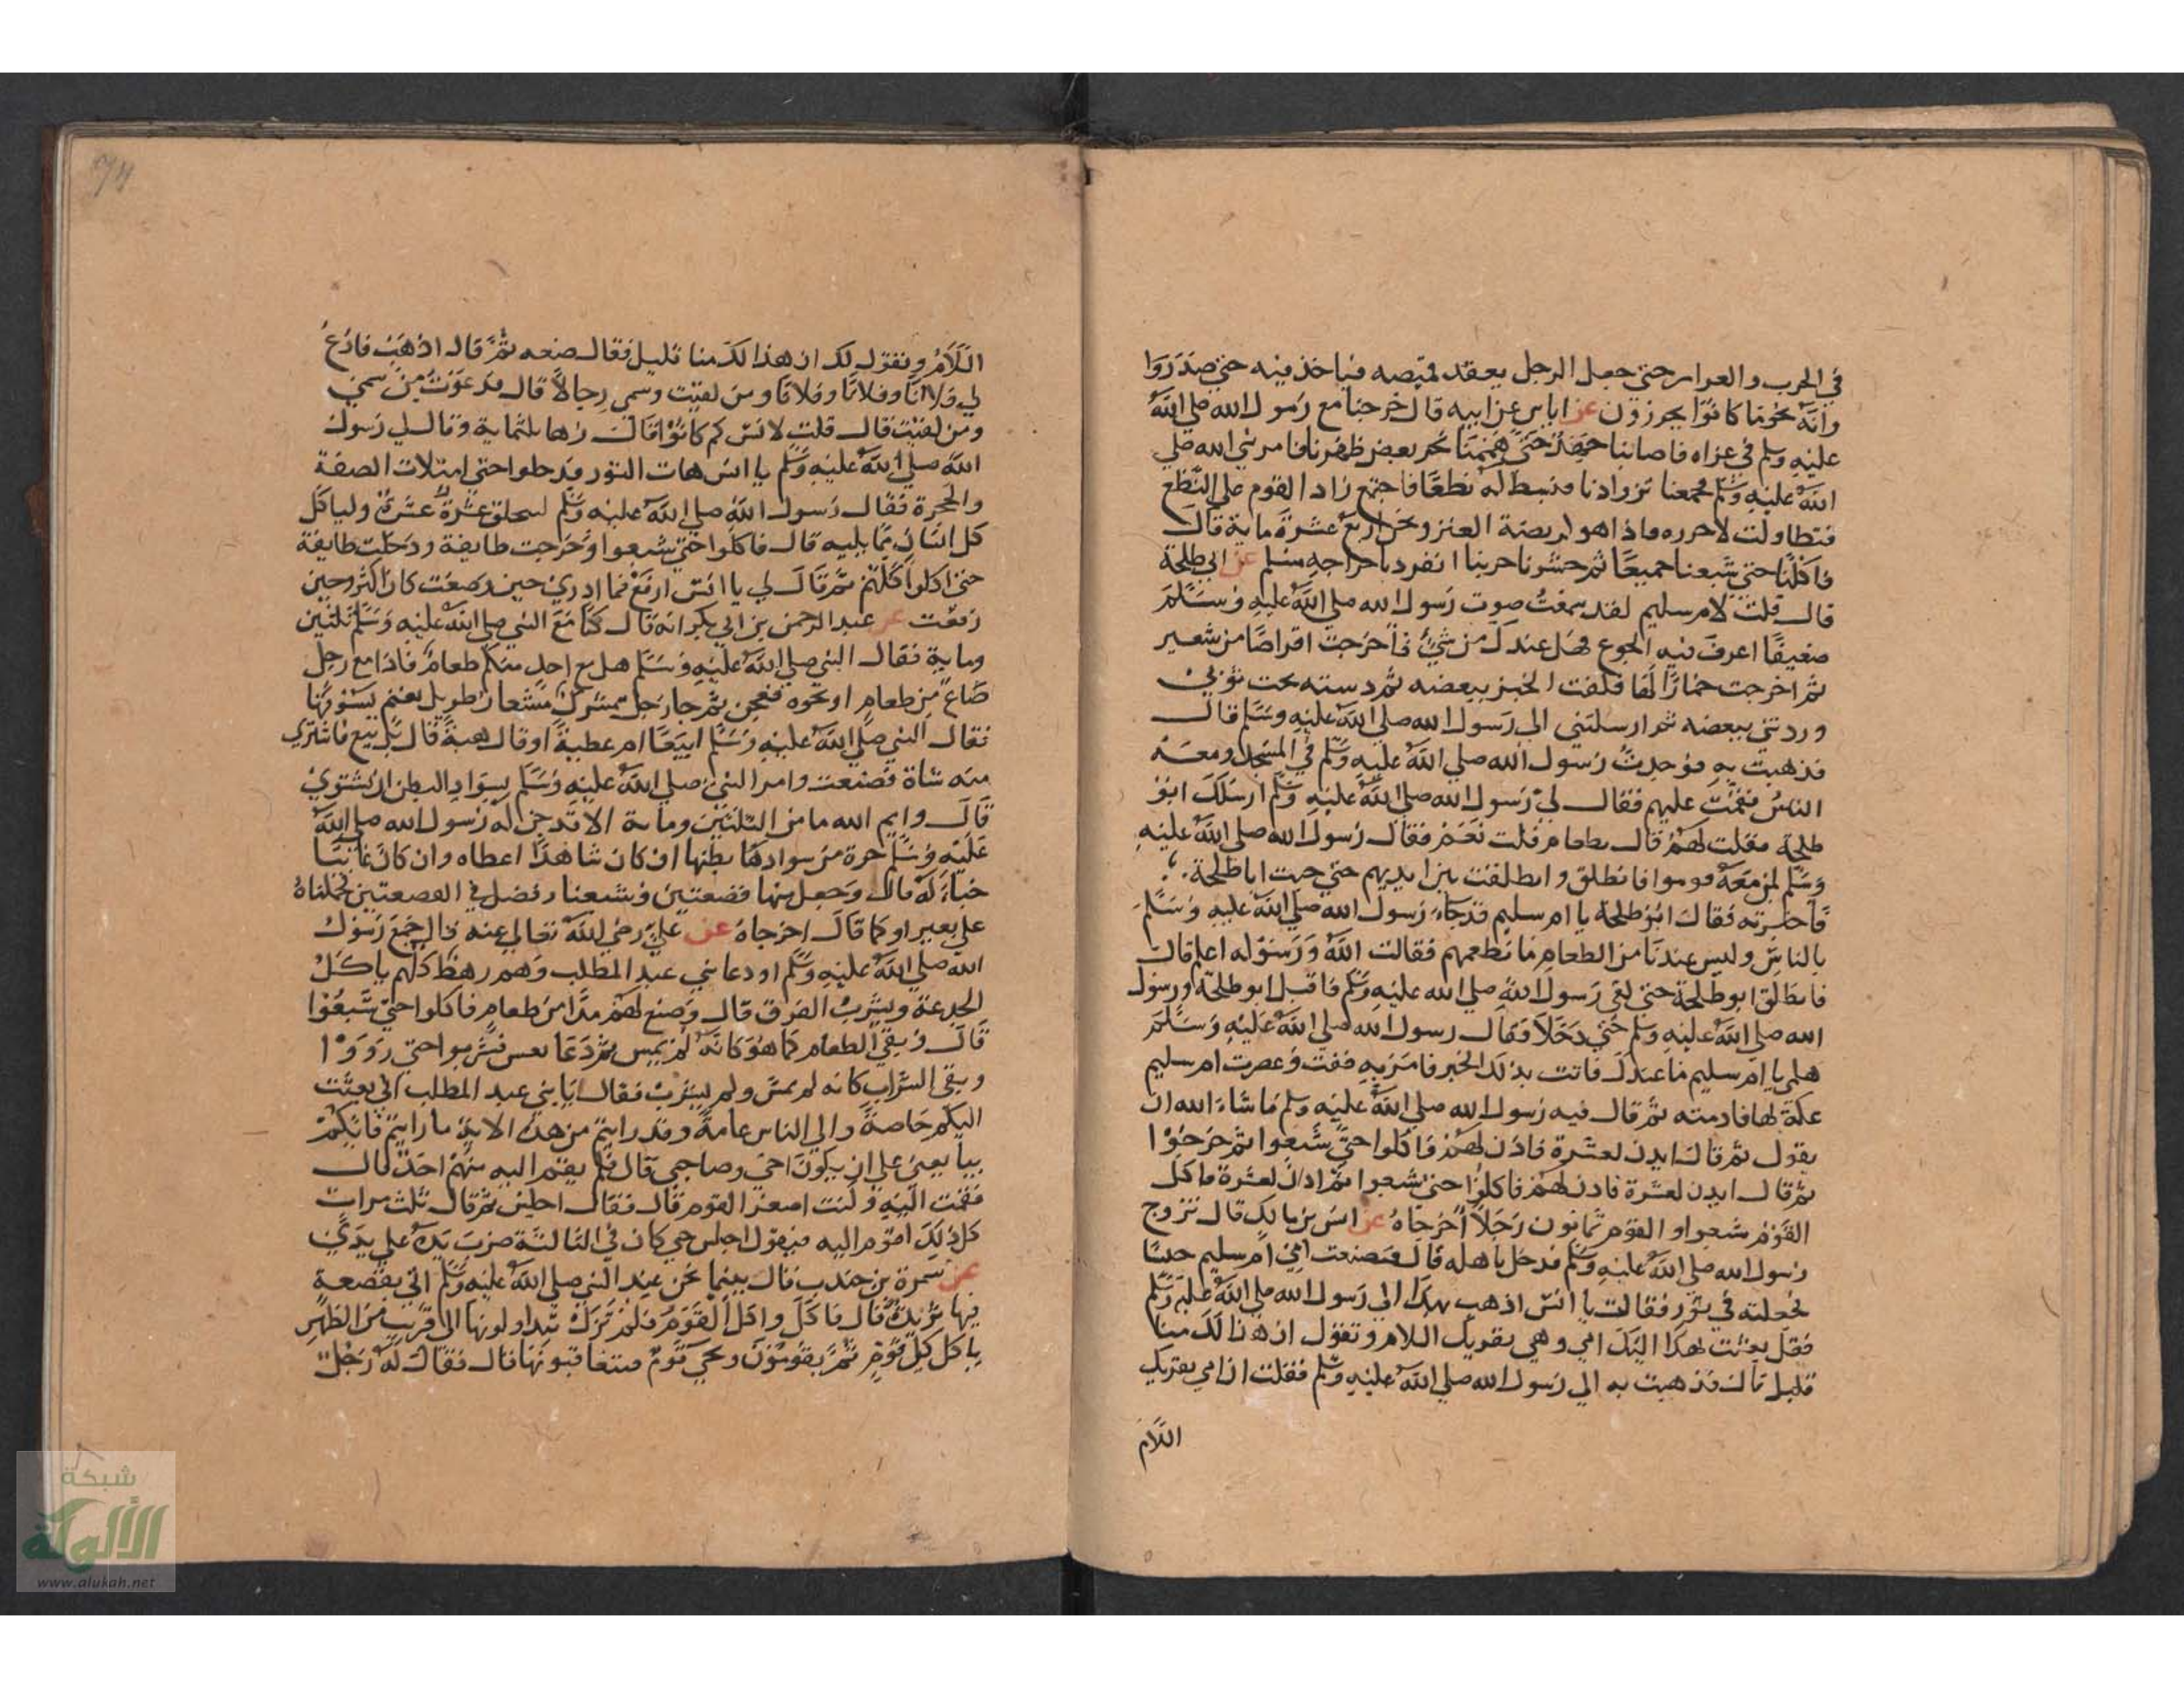 في الجرب والعرابر حتى جعل الرجل يعقد قميصه فياخذ فيه حتى صدروا
وانه نحو ما كانوا يحرزون عن اياس عن ابيه قال خرجنا مع رسول الله صلى الله
عليه وسلم في غزاه فاصابنا جهد حتى هممنا نحر بعض ظهرنا فامر نبي الله صلى
الله عليه وسلم فجمعنا تزوادنا فبسط له نطعا فاجتمع زاد القوم على النطع
فتطاولت لاحرره فاذا هو لربضة العنز ونحن اربع عشرة ماية قال
فاكلنا حتى شبعنا جميعا ثم حشونا جربنا انفرد باخراجه مسلم عن ابي طلحة
قال قلت لام سليم لقد سمعت صوت رسول الله صلى الله عليه وسلم
ضعيفا اعرف فيه الجوع فهل عندك من شئ فاخرجت اقراصا من شعير
ثم اخرجت خمارا لها فلفت الخبز ببعضه ثم دسته تحت ثوبي
وردتني ببعضه ثم ارسلتني الى رسول الله صلى الله عليه وسلم قال
فذهبت به فوجدت رسول الله صلى الله عليه وسلم في المسجد ومعه
الناس فقمت عليهم فقال لي رسول الله صلى الله عليه وسلم ارسلك ابو
طلحة فقلت لهم قال بطعام فقلت نعم فقال رسول الله صلى الله عليه
وسلم لمن معه قوموا فانطلق وانطلقت بين ايديهم حتى جيت ابا طلحة
فاخبرته فقال ابو طلحة يا ام سليم قد جاء رسول الله صلى الله عليه وسلم
بالناس وليس عندنا من الطعام ما نطعمهم فقالت الله ورسوله اعلم قال
فانطلق ابو طلحة حتى لقي رسول الله صلى الله عليه وسلم فاقبل ابو طلحة ورسول
الله صلى الله عليه وسلم حتى دخلا فقال رسول الله صلى الله عليه وسلم
هلمي يا ام سليم ما عندك فاتت بذلك الخبز فامر به ففت وعصرت ام سليم
عكة لها فادمته ثم قال فيه رسول الله صلى الله عليه وسلم ما شاء الله ان
يقول ثم قال ايذن لعشرة فاذن لهم فاكلوا حتى شبعوا ثم خرجوا
ثم قال ايذن لعشرة فاذن لهم فاكلوا حتى شبعوا ثم اذن لعشرة فاكل
القوم شبعوا والقوم ثمانون رجلا اخرجاه عن انس بن مالك قال تزوج
رسول الله صلى الله عليه وسلم فدخل باهله قال فصنعت امي ام سليم حيسا
فجعلته في تور فقالت يا انس اذهب بهذا الى رسول الله صلى الله عليه وسلم
فقل بعثت بهذا اليك امي وهي تقريك السلام وتقول ان هذا لك منا
قليل قال فذهبت به الى رسول الله صلى الله عليه وسلم فقلت ان امي تقريك
السلام
السلام وتقول لك ان هذا لك منا قليل فقال ضعه ثم قال اذهب فادع
لي فلانا وفلانا وفلانا ومن لقيت وسمى رجالا قال فدعوت من سمى
ومن لقيت قال قلت لانس كم كانوا قال زها ثلثماية وقال لي رسول
الله صلى الله عليه وسلم يا انس هات التور فدخلوا حتى امتلات الصفة
والحجرة فقال رسول الله صلى الله عليه وسلم ليتحلق عشرة عشرة ولياكل
كل انسان مما يليه قال فاكلوا حتى شبعوا وخرجت طايفة ودخلت طايفة
حتى اكلوا كلهم ثم قال لي يا انس ارفع فما ادري حين وضعت كان اكثر وحين
رفعت عن عبد الرحمن بن ابي بكر انه قال كنا مع النبي صلى الله عليه وسلم ثلثين
وماية فقال النبي صلى الله عليه وسلم هل مع احد منكم طعام فاذا مع رجل
صاع من طعام او نحوه فعجن ثم جا رجل مشرك مشعان طويل بغنم يسوقها
فقال النبي صلى الله عليه وسلم ابيعا ام عطية او قال هبة قال بل بيع فاشتري
منه شاة فصنعت وامر النبي صلى الله عليه وسلم بسواد البطن ان يشتوي
قال وايم الله ما من الثلثين وماية الا قد حز له رسول الله صلى الله
عليه وسلم حزة من سواد بطنها ان كان شاهدا اعطاه وان كان غايبا
خباء له قال وجعل منها قصعتين وشبعنا وفضل في القصعتين فحملناه
على بعير او كما قال اخرجاه عن علي رضي الله تعالى عنه قال جمع رسول
الله صلى الله عليه وسلم او دعا بني عبد المطلب وهم رهط كلهم ياكل
الجذعة ويشرب الفرق قال وصنع لهم مدا من طعام فاكلوا حتى شبعوا
قال وبقي الطعام كما هو كانه لم يمس ثم دعا بعس فشربوا حتى رووا
وبقي الشراب كانه لم يمس ولم يشرب فقال يا بني عبد المطلب اني بعثت
اليكم خاصة والى الناس عامة وقد رايتم من هذه الاية ما رايتم فايكم
يبايعني على ان يكون اخي وصاحبي قال فلم يقم اليه منهم احد قال
فقمت اليه وكنت اصغر القوم قال فقال اجلس ثم قال ثلث مرات
كل ذلك اقوم اليه فيقول اجلس حتى كان في الثالثة ضرب يده على يدي
عن سمرة بن جندب قال بينما نحن عند النبي صلى الله عليه وسلم اتي بقصعة
فيها ثريد قال فاكل واكل القوم فلم تزل تتداولونها الى قريب من الظهر
ياكل كل قوم ثم يقومون ويجي قوم فيتعاقبونها قال فقال له رجل
شبكة
الألوكة
www.alukah.net